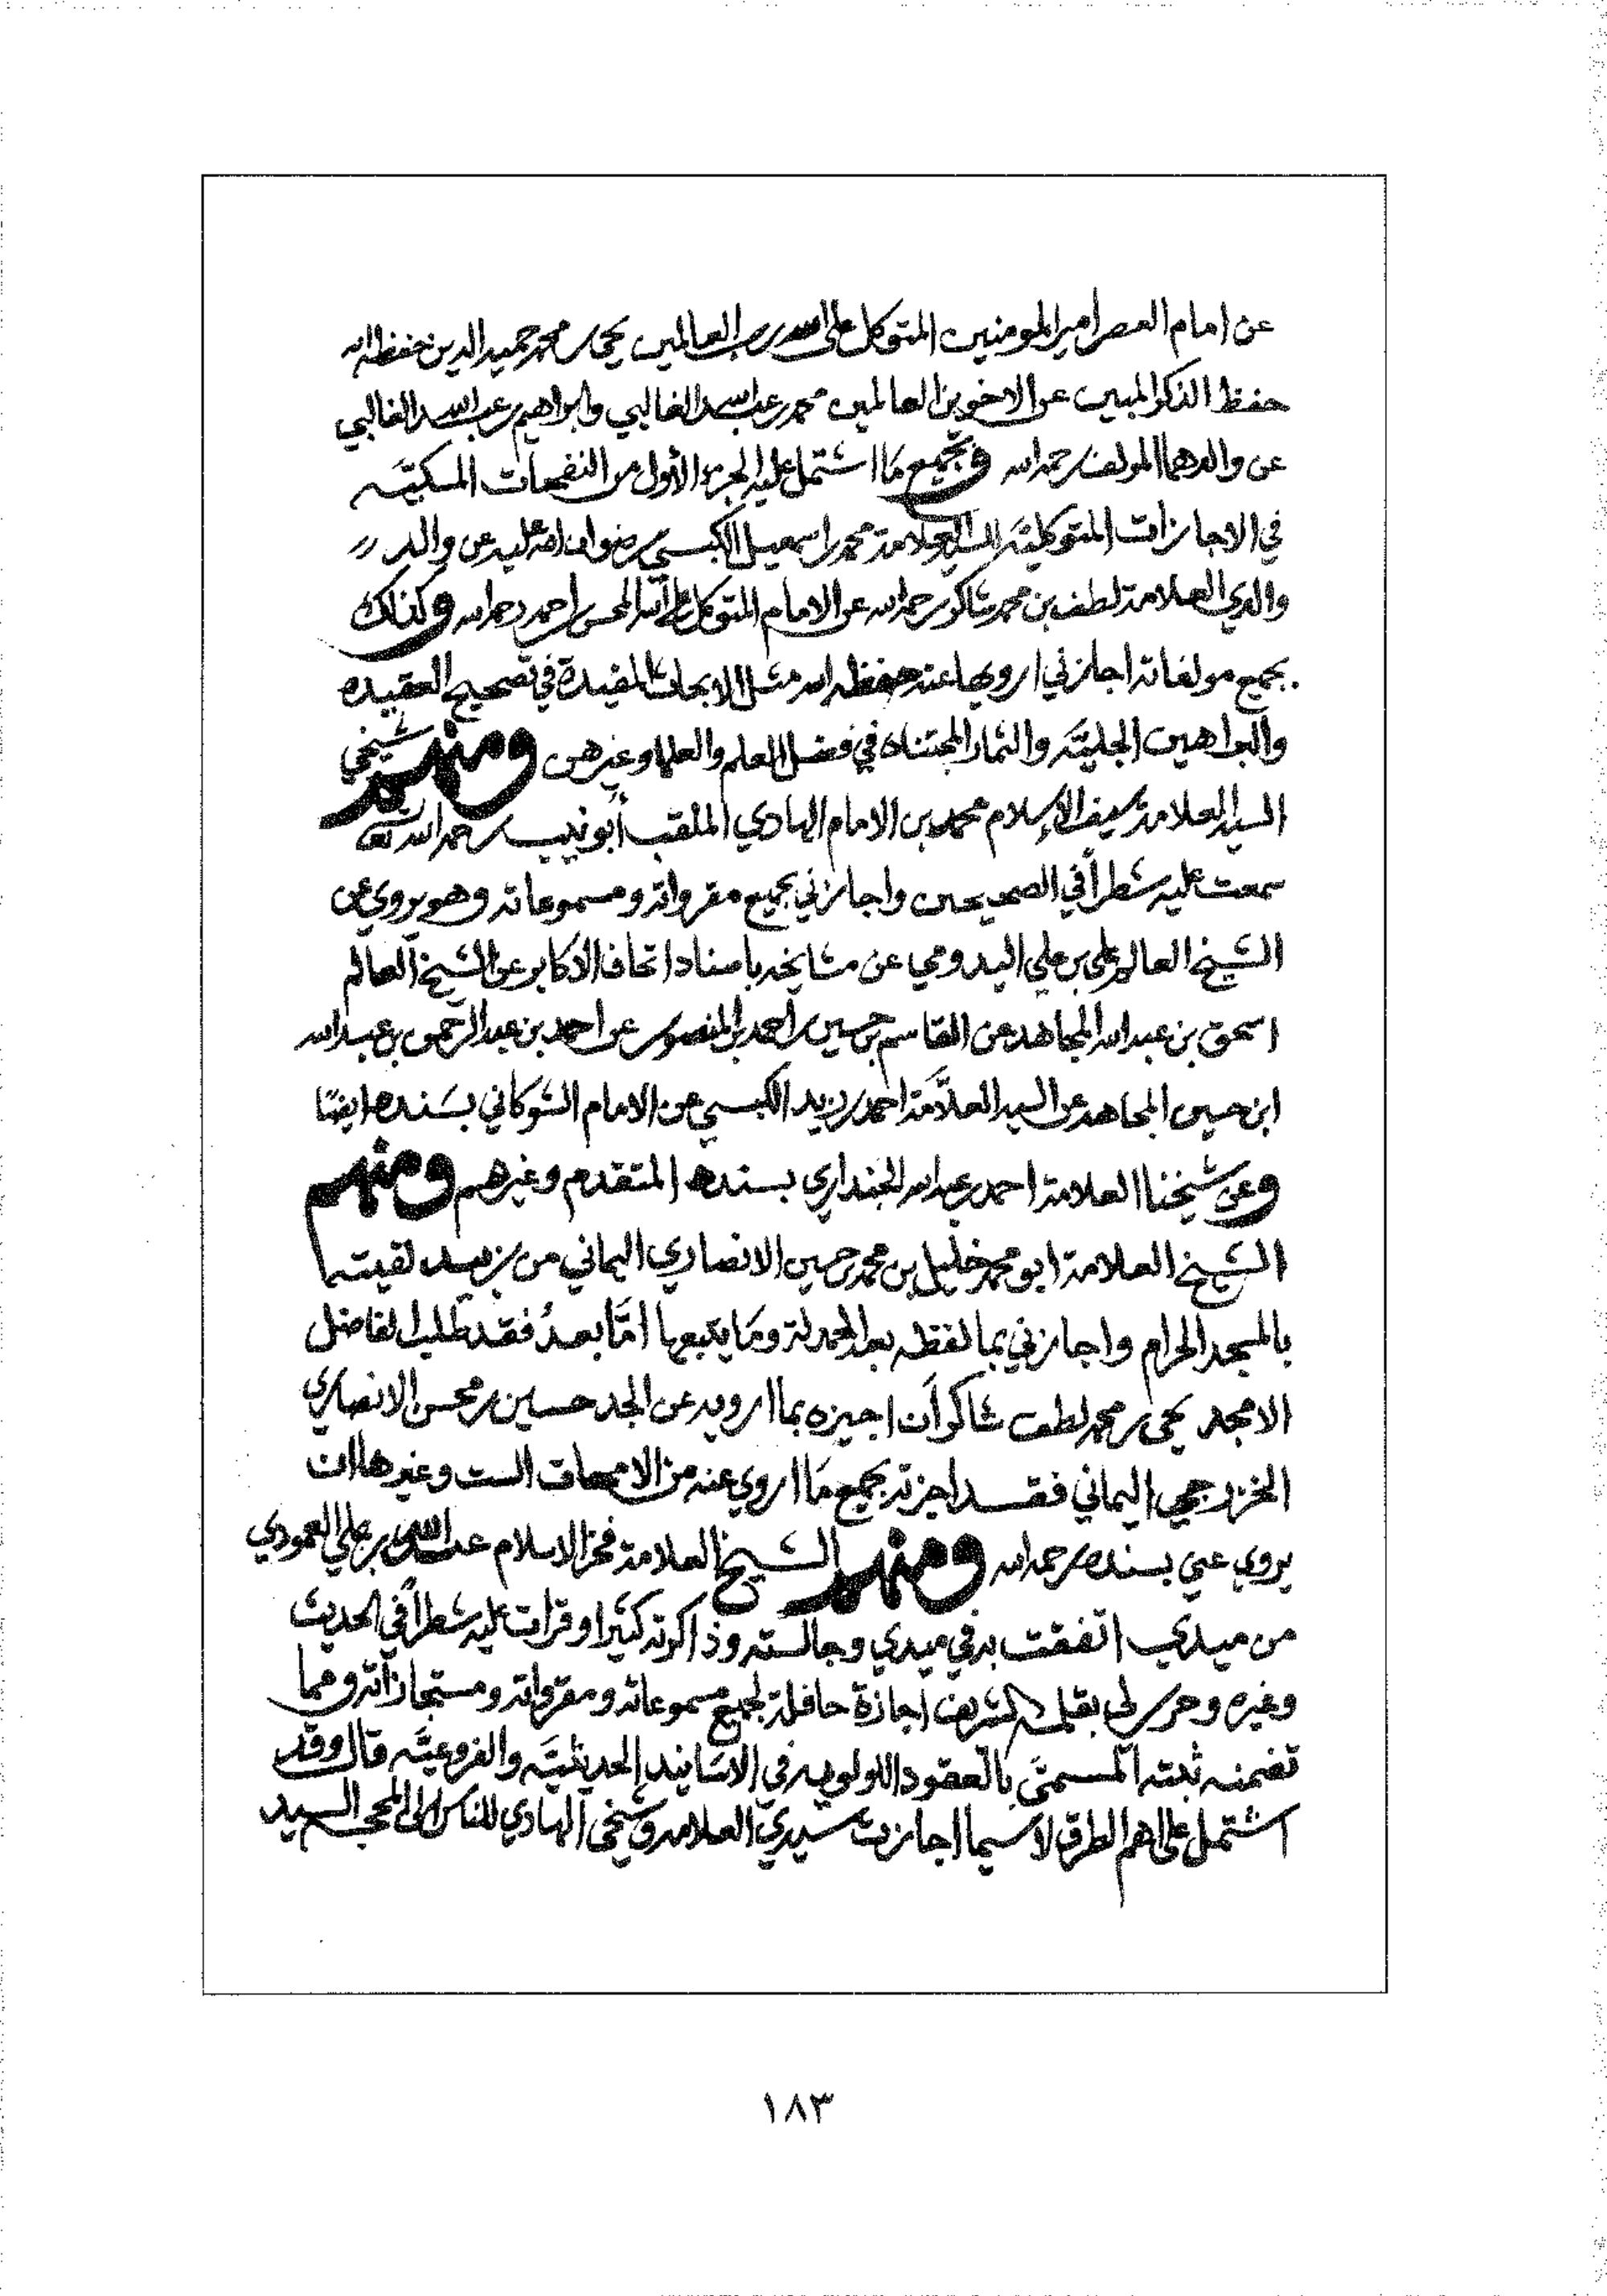 عن امام العصر امير المومنين المتوكل على الله رب العالمين يحيى بن محمد حميد الدين حفظه الله
حفظ الذكر المبين عن الاخوين العالمين محمد بن عبد الله الغالبي وابراهيم بن عبد الله الغالبي
عن والدهما المولف رحمه الله وبجميع ما اشتمل عليه الجزء الأول من النفحات المسكيته
في الاجازات المتوكليه للسيد العلامة محمد بن اسمعيل الكبسي رضوان الله عليه عن والد
والدي العلامة لطف بن محمد شاكر رحمه الله عن الامام المتوكل على الله المحسن بن احمد رحمه الله وكذلك
بجميع مولفاته اجازني ارويها عنه حفظه الله مثل الابحاث المفيدة في تصحيح العقيده
والبراهين الجليه والثمار المجتناه في فضل العلم والعلما وغيرهن ومنهم شيخي
السيد العلامة سيف الإسلام محمد بن الامام الهادي الملقب أبو نيب رحمه الله تعالى
سمعت عليه شطراً في الصحيحين واجازني بجميع مقرواته ومسموعاته وهو يروي عن
الشيخ العالم علي بن علي اليدومي عن مشايخه باسناد اتحاف الأكابر عن الشيخ العالم
اسحق بن عبد الله المجاهد عن القاسم بن حسين بن احمد بن المنصور عن احمد بن عبد الرحمن بن عبد الله
ابن حسين المجاهد عن السيد العلامة احمد بن زيد الكبسي عن الامام الشوكاني بسنده ايضا
وعن شيخنا العلامة احمد بن عبد الله الجنداري بسنده المتقدم وغيرهم ومنهم
الشيخ العلامة ابو محمد خليل بن محمد بن حسين الانصاري اليماني من زبيد لقيته
بالمسجد الحرام واجازني بما لفظه بعد الحمدلة وما يتبعها امّا بعدُ فقد طلب الفاضل
الامجد يحيى بن محمد لطف شاكر أن اجيزه بما ارويه عن الجد حسين بن محسن الانصاري
الخزرجي اليماني فقد اجزته بجميع ما اروي عنه من الامهات الست وغيرها ان
يروي عني بسنده رحمه الله ومنهم الشيخ العلامة فخر الاسلام عبد الله بن علي العمودي
من ميدي اتفقت به في ميدي وجالسته وذاكرته كثيرا وقرات عليه شطراً في الحديث
وغيره وحرر لي بقلمه الشريف اجازة حافلة لجميع مسموعاته ومقرواته ومستجازاته ومما
تضمنه ثبته المسمى بالعقود اللولويه في الاسانيد الحديثيه والفروعيه قال وقد
اشتمل على اهم الطرق لا سيما اجازت سيدي العلامه وشيخي الهادي للناس الى المحجه السيد
١٨٣